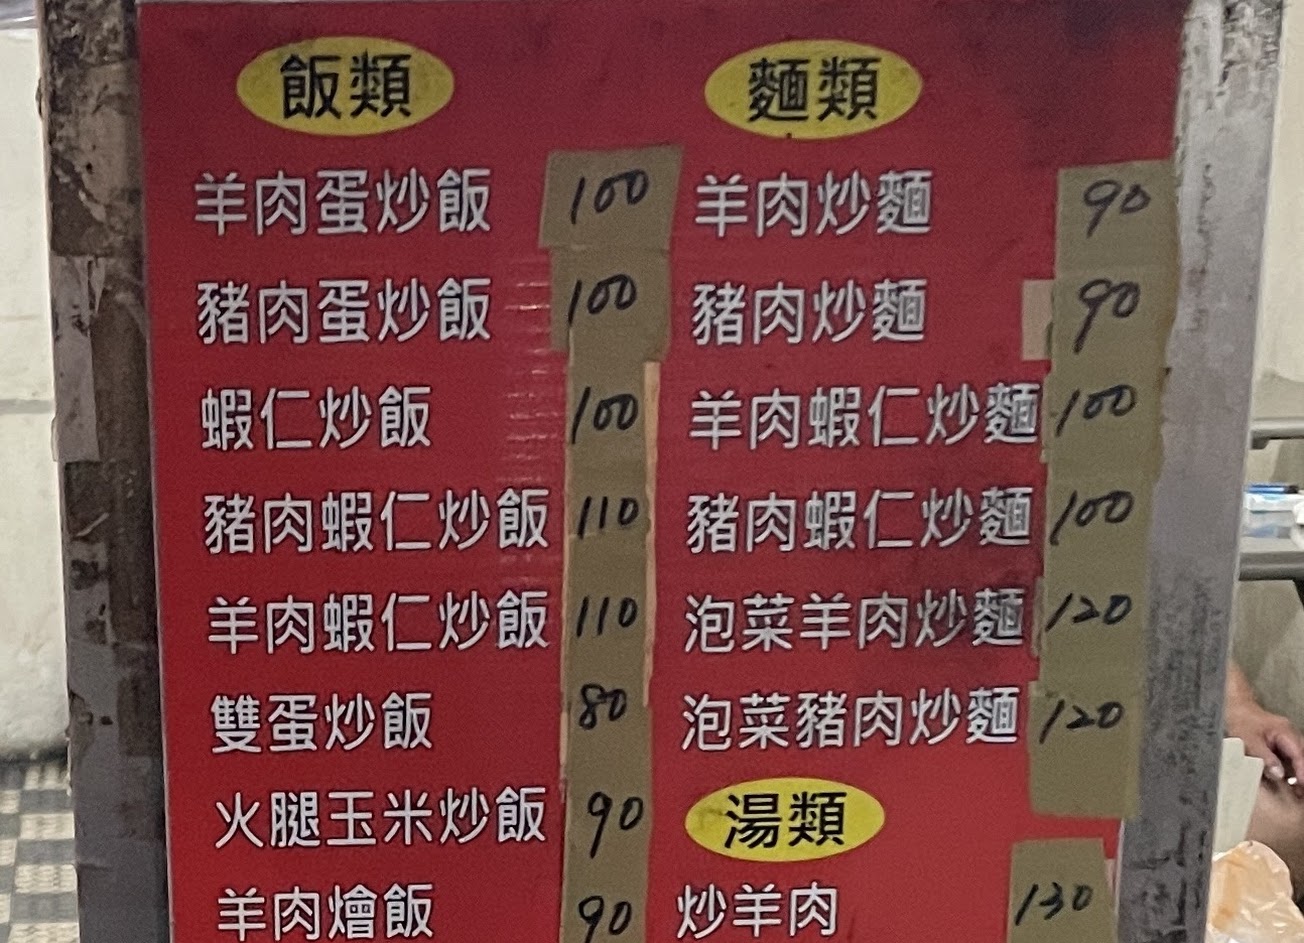 飯類
羊肉蛋炒飯 100
豬肉蛋炒飯 100
蝦仁炒飯 100
豬肉蝦仁炒飯 110
羊肉蝦仁炒飯 110
雙蛋炒飯 80
火腿玉米炒飯 90
羊肉燴飯 90
麵類
羊肉炒麵 90
豬肉炒麵 90
羊肉蝦仁炒麵 100
豬肉蝦仁炒麵 100
泡菜羊肉炒麵 120
泡菜豬肉炒麵 120
湯類
炒羊肉 130